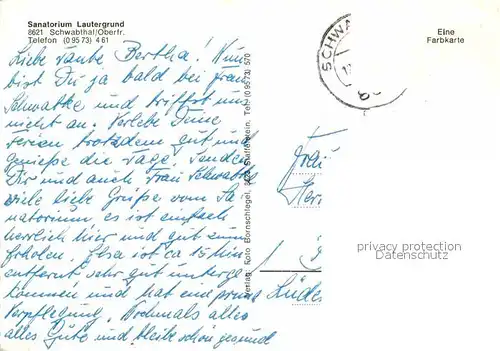 Sanatorium Lautergrund
8621 Schwabthal/Oberfr.
Telefon (0 95 73) 4 61
Eine
Farbkarte
SCHWA
Liebe Bertha! Nun
bist Du ja bald bei Frau
Schwabke und triffst uns
nicht an. Verlebe Deine
Ferien trotzdem gut und
genieße die Tage. Senden
Dir und auch Frau Schwabke
viele liebe Grüße vom Sa-
natorium es ist einfach
herrlich hier und gut zum
Erholen. Elsa ist ca 15 Min
entfernt sehr gut unterge-
kommen und hat eine prima
Verpflegung. Nochmals alles
alles Gute und bleibe schön gesund
Verlag: Foto Bornschlegel, 8623 Staffelstein, Tel. (0 95 73) 5 70
Frau
Her
Lüde
privacy protection
Datenschutz